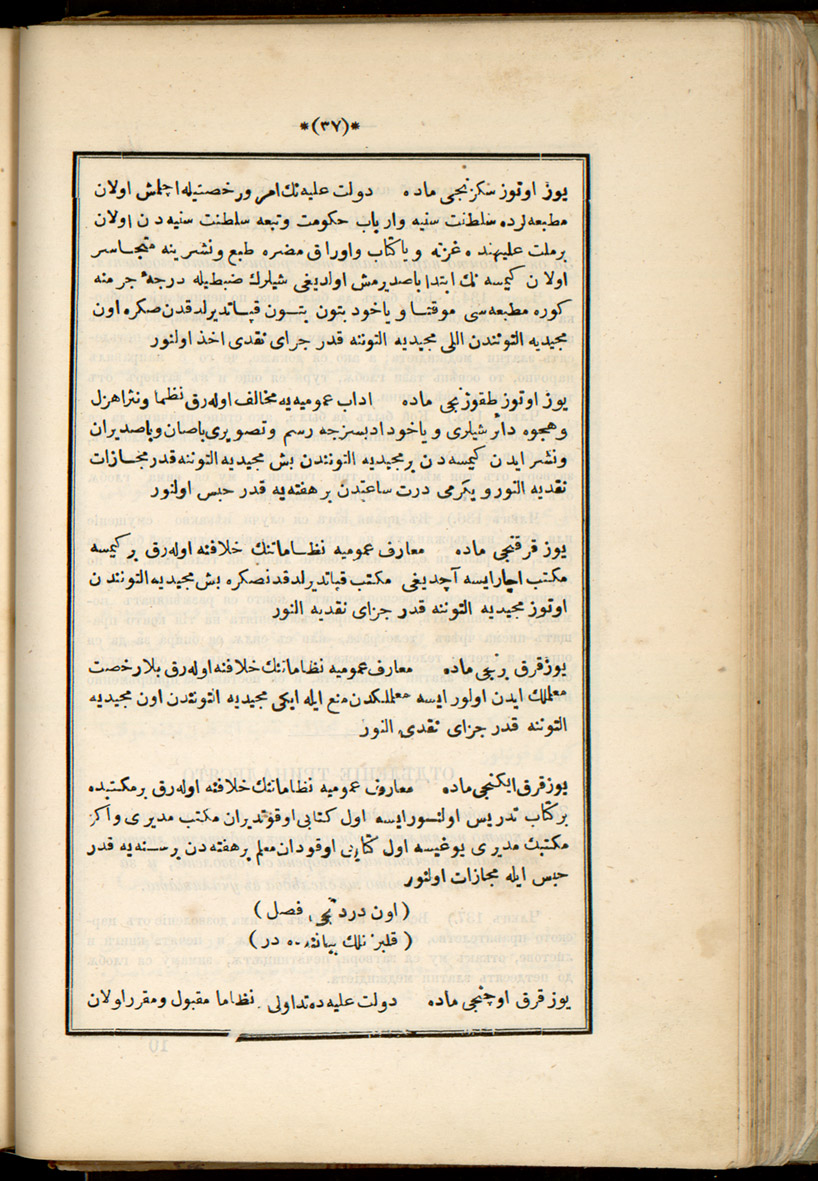 *(٣٧)*
یوز اوتوز سکزنجی ماده دولت علیه نك امر و رخصتیله اچلمش اولان
مطبعه لرده سلطنت سنیه وارباب حکومت وتبعه سلطنت سنیه دن اولان
برملت علیهنده غزته ویاکتاب واوراق مضره طبع ونشرینه متجاسر
اولان کیمسه نك ابتدا باصدیرمش اولدیغی شیلرك ضبطیله درجهٔ جرمنه
کوره مطبعه سی موقتا ویاخود بتون بتون قپاتدیرلدقدن صکره اون
مجیدیه التونندن اللی مجیدیه التوننه قدر جزای نقدی اخذ اولنور
یوز اوتوز طقوزنجی ماده اداب عمومیه یه مخالف اوله رق نظما ونثرا هزل
وهجوه دائر شیلری ویاخود ادبسزجه رسم وتصویری باصان وباصدیران
ونشر ایدن کیمسه دن بر مجیدیه التونندن بش مجیدیه التوننه قدر مجازات
نقدیه النور ویکرمی درت ساعتدن برهفته یه قدر حبس اولنور
یوز قرقنجی ماده معارف عمومیه نظاماتنك خلافنه اوله رق برکیمسه
مکتب اچارایسه آچدیغی مکتب قپاتدیرلدقدنصکره بش مجیدیه التونندن
اوتوز مجیدیه التوننه قدر جزای نقدیه النور
یوزقرق برنجی ماده معارف عمومیه نظاماتنك خلافنه اوله رق بلا رخصت
معلملك ایدن اولور ایسه معلملکدن منع ایله ایکی مجیدیه التونندن اون مجیدیه
التوننه قدر جزای نقدی النور
یوزقرق ایکنجی ماده معارف عمومیه نظاماتنك خلافنه اوله رق برمکتبده
برکتاب تدریس اولنورایسه اول کتابی اوقوتدیران مکتب مدیری واکر
مکتبك مدیری یوغیسه اول کتابی اوقودان معلم برهفته دن برسنه یه قدر
حبس ایله مجازات اولنور
(اون دردنجی فصل)
(قلبزنلك بیاننده در)
یوزقرق اوچنجی ماده دولت علیه ده تداولی نظاما مقبول ومقرر اولان